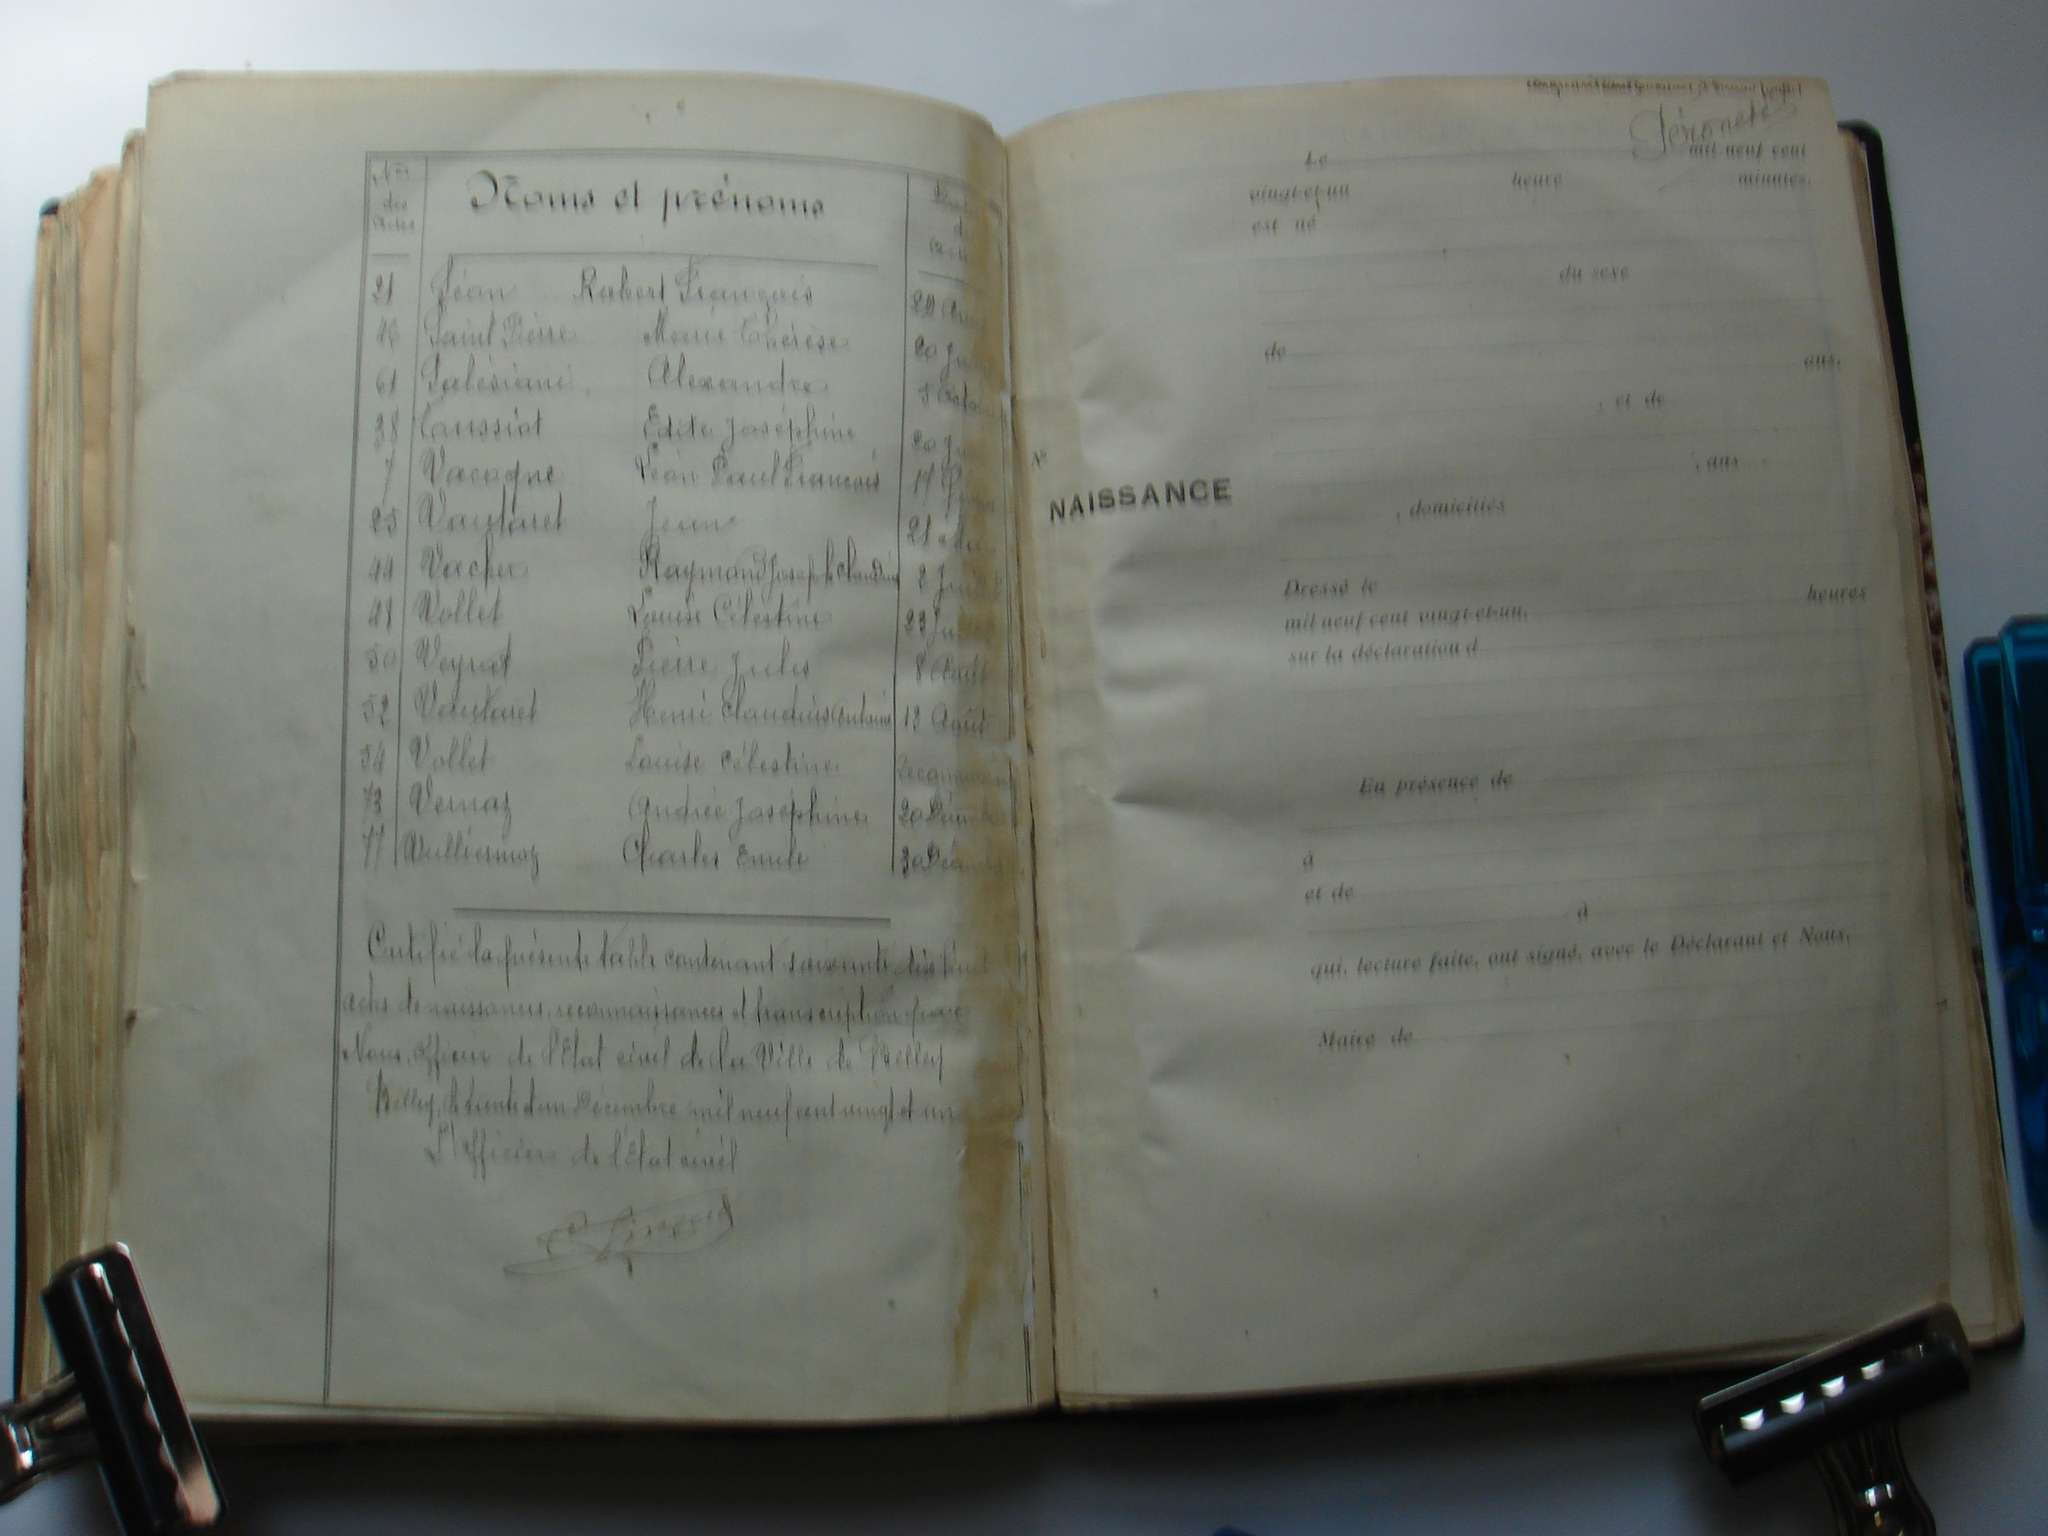 Nos
des
Actes
Noms et prénoms
21 Réan Robert François 29 Av
43 Saint Pierre Marie Thérèse 20 Ju
61 Salésiani Alexandre 5 Octo
38 Taussiat Edite Joséphine 20 Ju
7 Vacagne Jean Paul François 17
25 Vautaret Jean 21 M
44 Vercher Raymond Joseph Claudius 2 Jui
48 Vollet Louise Célestine 23 Jui
50 Veyrat Pierre Jules 8 Août
52 Vautaret Henri Claudius Antoine 12 Août
54 Vollet Louise Célestine
73 Vernaz Andrée Joséphine 20 Décemb
77 Vulliermoz Charles Emile 30 Décemb
Certifié la présente table contenant soixante dix
actes de naissances, reconnaissances et transcription par
Nous, Officier de l'Etat civil de la Ville de Belley
Belley, le trente et un Décembre mil neuf cent vingt et un
L'Officier de l'Etat civil
Le mil neuf cent
vingt-et-un heure minutes.
est né
du sexe
de ans,
, et de
, ans
No
NAISSANCE
, domiciliés
Dressé le heures
mil neuf cent vingt-et-un,
sur la déclaration d
En présence de
à
et de
à
qui, lecture faite, ont signé, avec le Déclarant et Nous,
Maire de